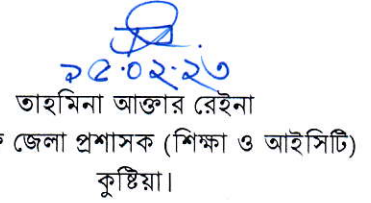 ১৫.০২.২৩
তাহমিনা আক্তার রেইনা
জেলা প্রশাসক (শিক্ষা ও আইসিটি)
কুষ্টিয়া।